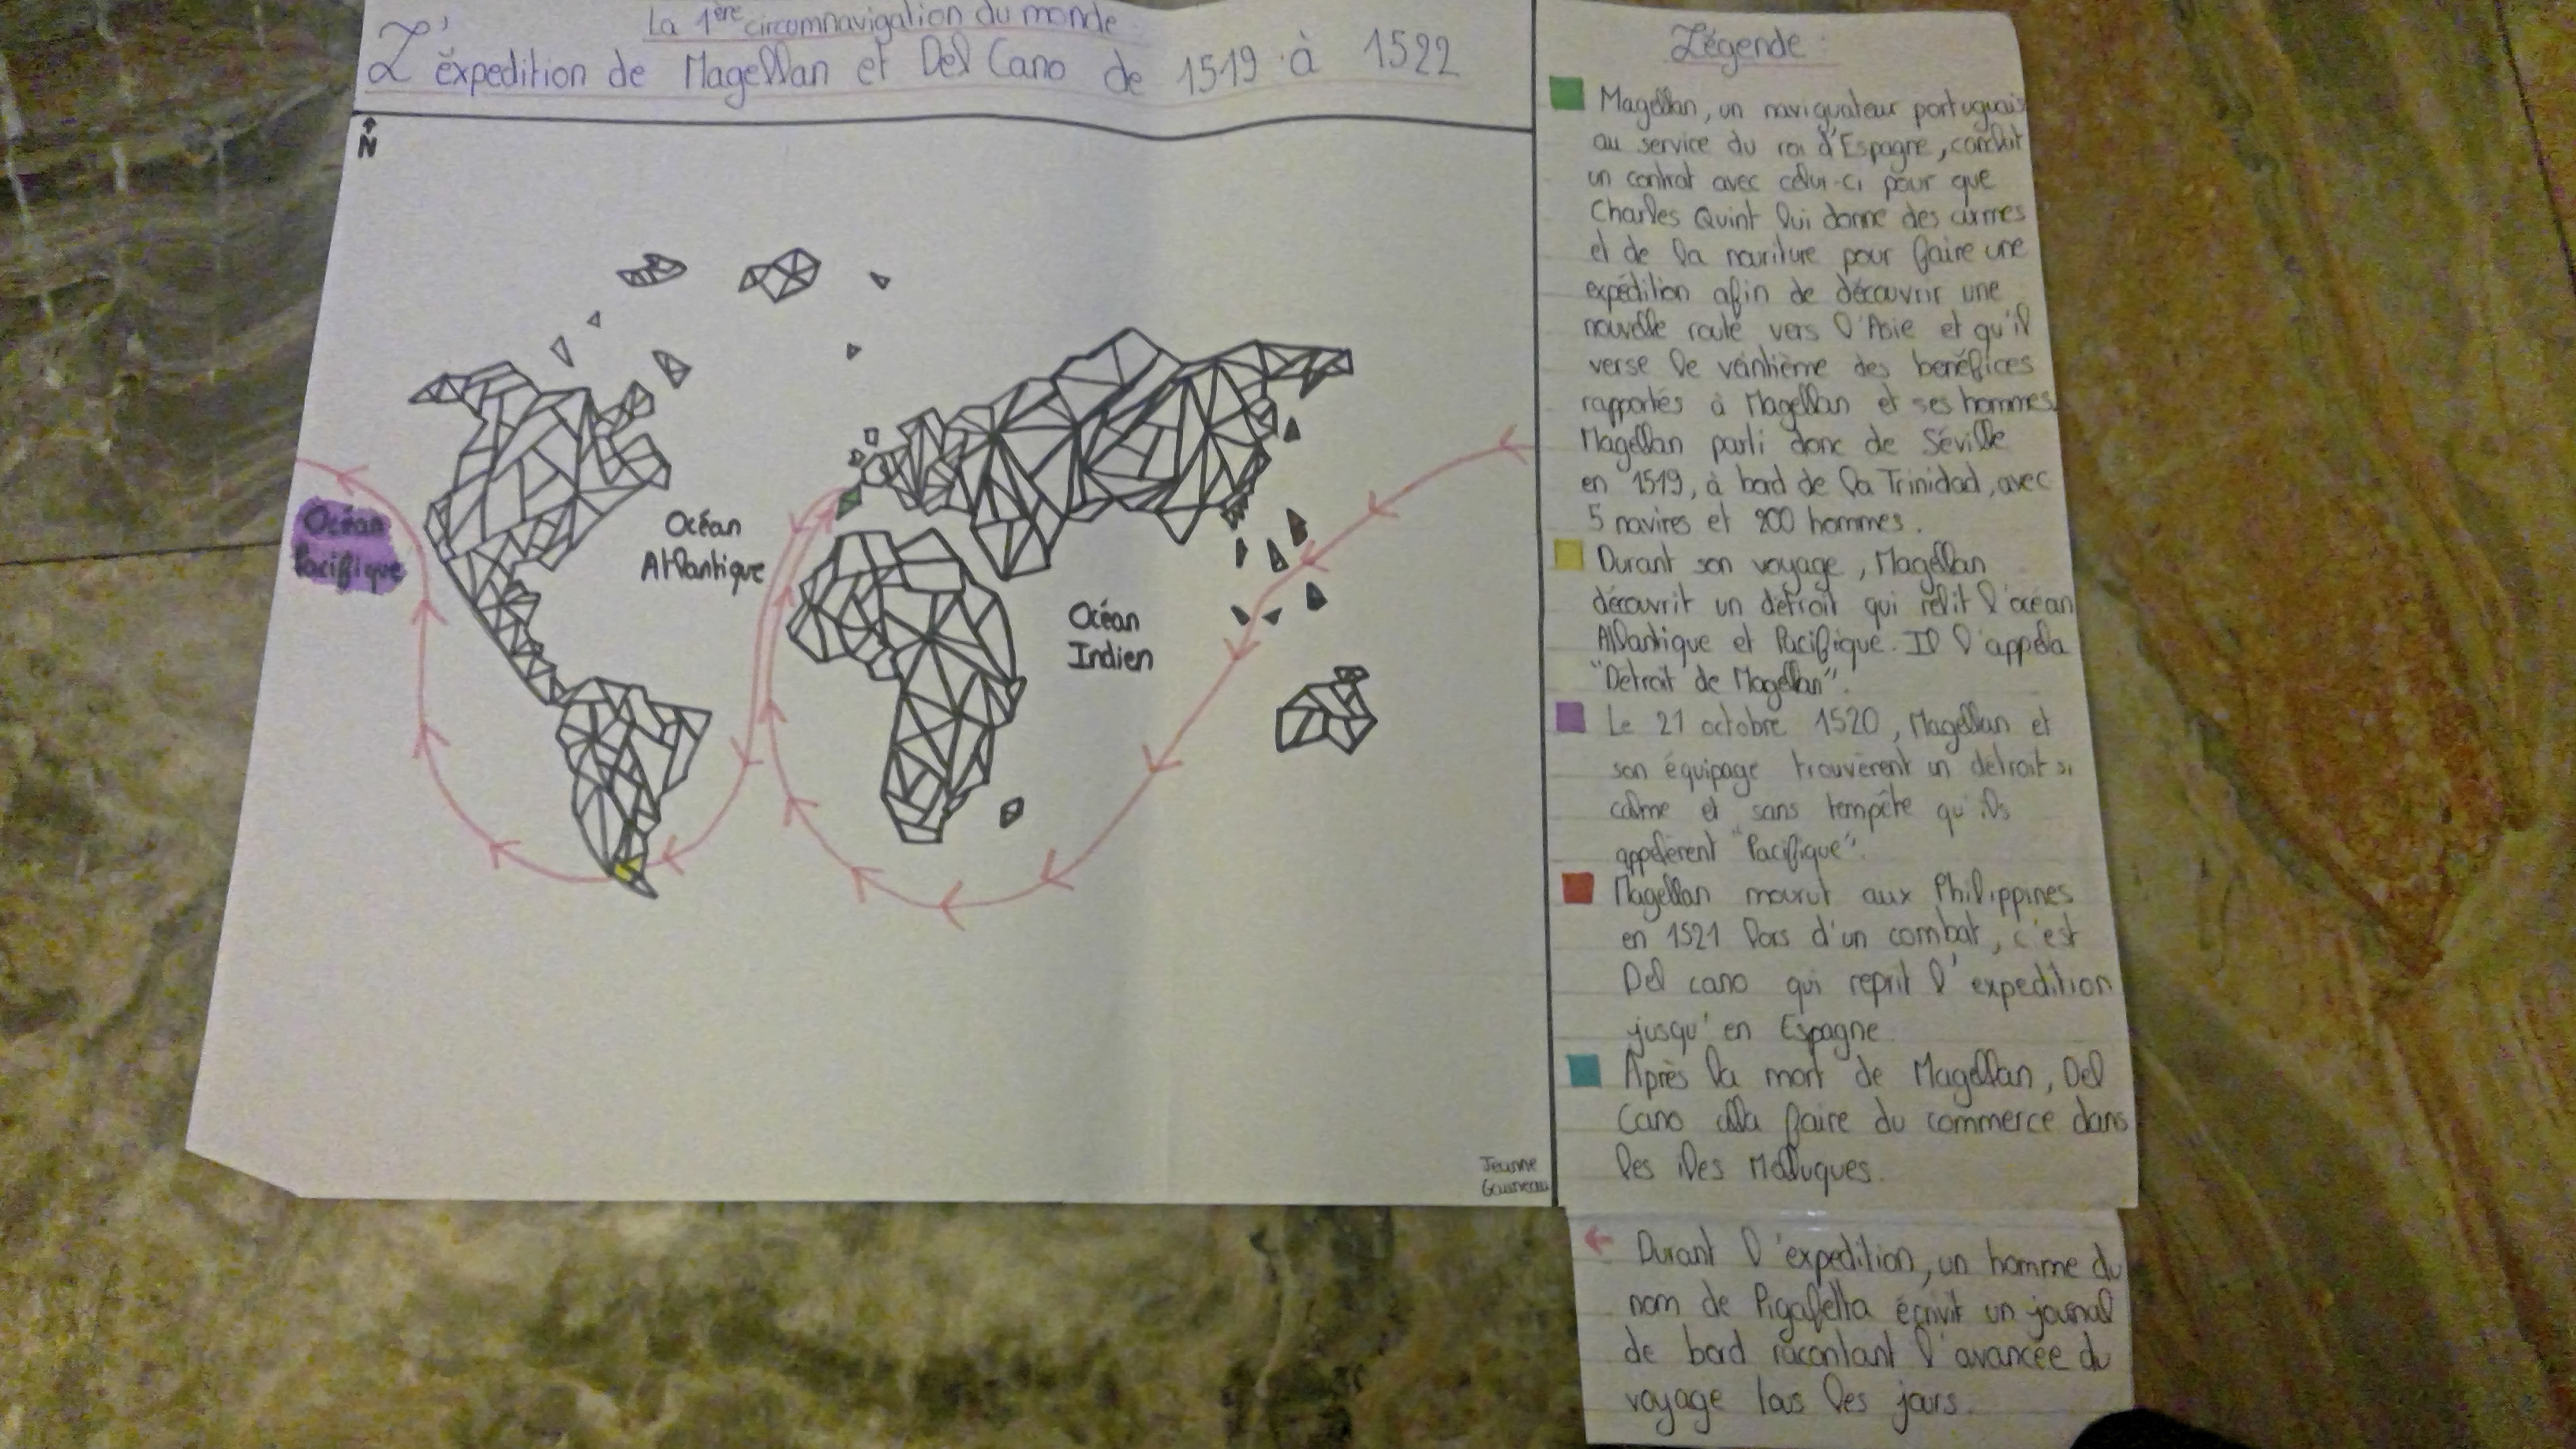 La 1ère circumnavigation du monde
L'expedition de Magellan et Del Cano de 1519 à 1522
N
Océan
Pacifique
Océan
Atlantique
Océan
Indien
Jeanne
Légende :
Magellan, un naviguateur portuguais
au service du roi d'Espagne, conclut
un contrat avec celui-ci pour que
Charles Quint lui donne des armes
et de la nouriture pour faire une
expédition afin de découvrir une
nouvelle route vers l'Asie et qu'il
verse le vaintième des benéfices
rapportés à Magellan et ses hommes.
Magellan parti donc de Séville
en 1519, à bord de la Trinidad, avec
5 navires et 200 hommes.
Durant son voyage, Magellan
découvrit un détroit qui relit l'océan
Atlantique et Pacifique. Il l'appela
"Détroit de Magellan".
Le 21 octobre 1520, Magellan et
son équipage trouvèrent un détroit si
calme et sans tempête qu'ils
appelèrent "Pacifique".
Magellan mourut aux Philippines
en 1521 lors d'un combat, c'est
Del cano qui reprit l'expedition
jusqu'en Espagne
Après la mort de Magellan, Del
Cano alla faire du commerce dans
les iles Moluques.
Durant l'expedition, un homme du
nom de Pigafetta écrivit un journal
de bord racontant l'avancée du
voyage tous les jours.